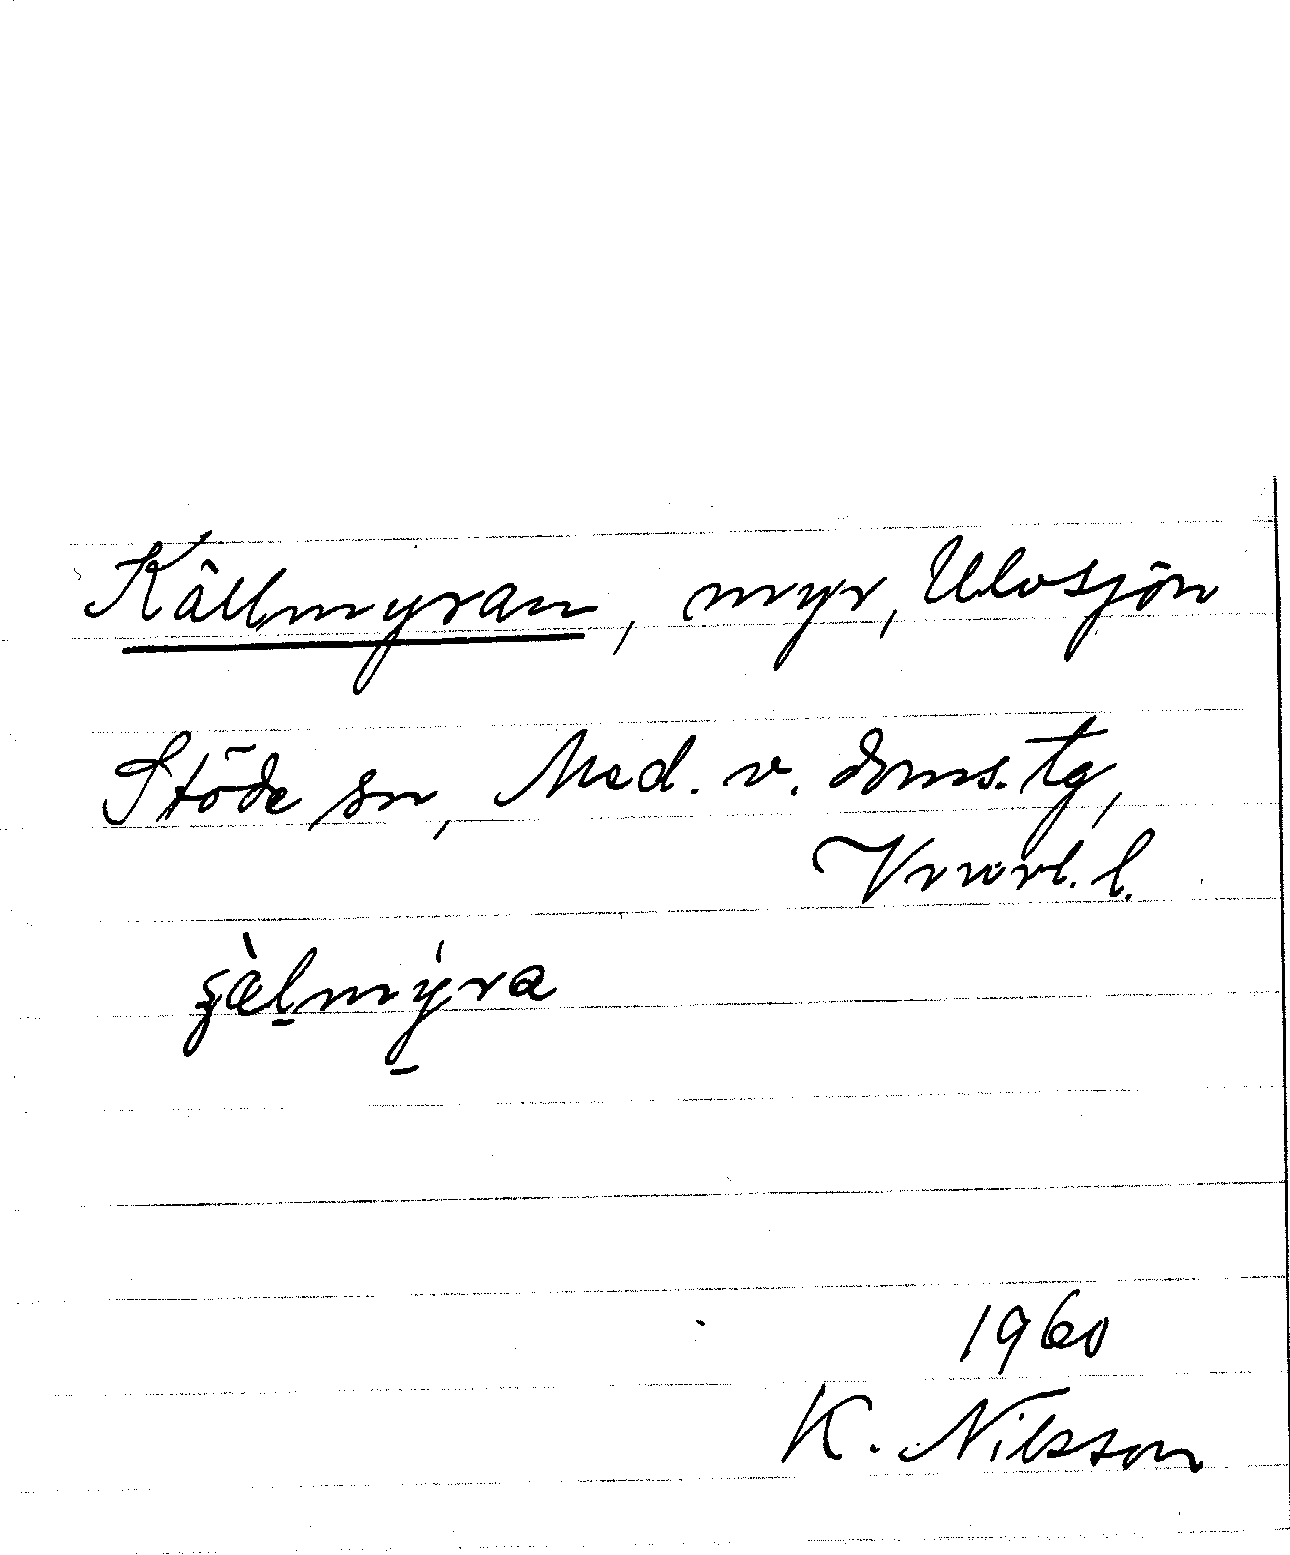 Källmyran, myr, Ulvsjön
Stöde sn, Med. v. doms. tg,
Vnorl. l.
1960
K. Nilsson